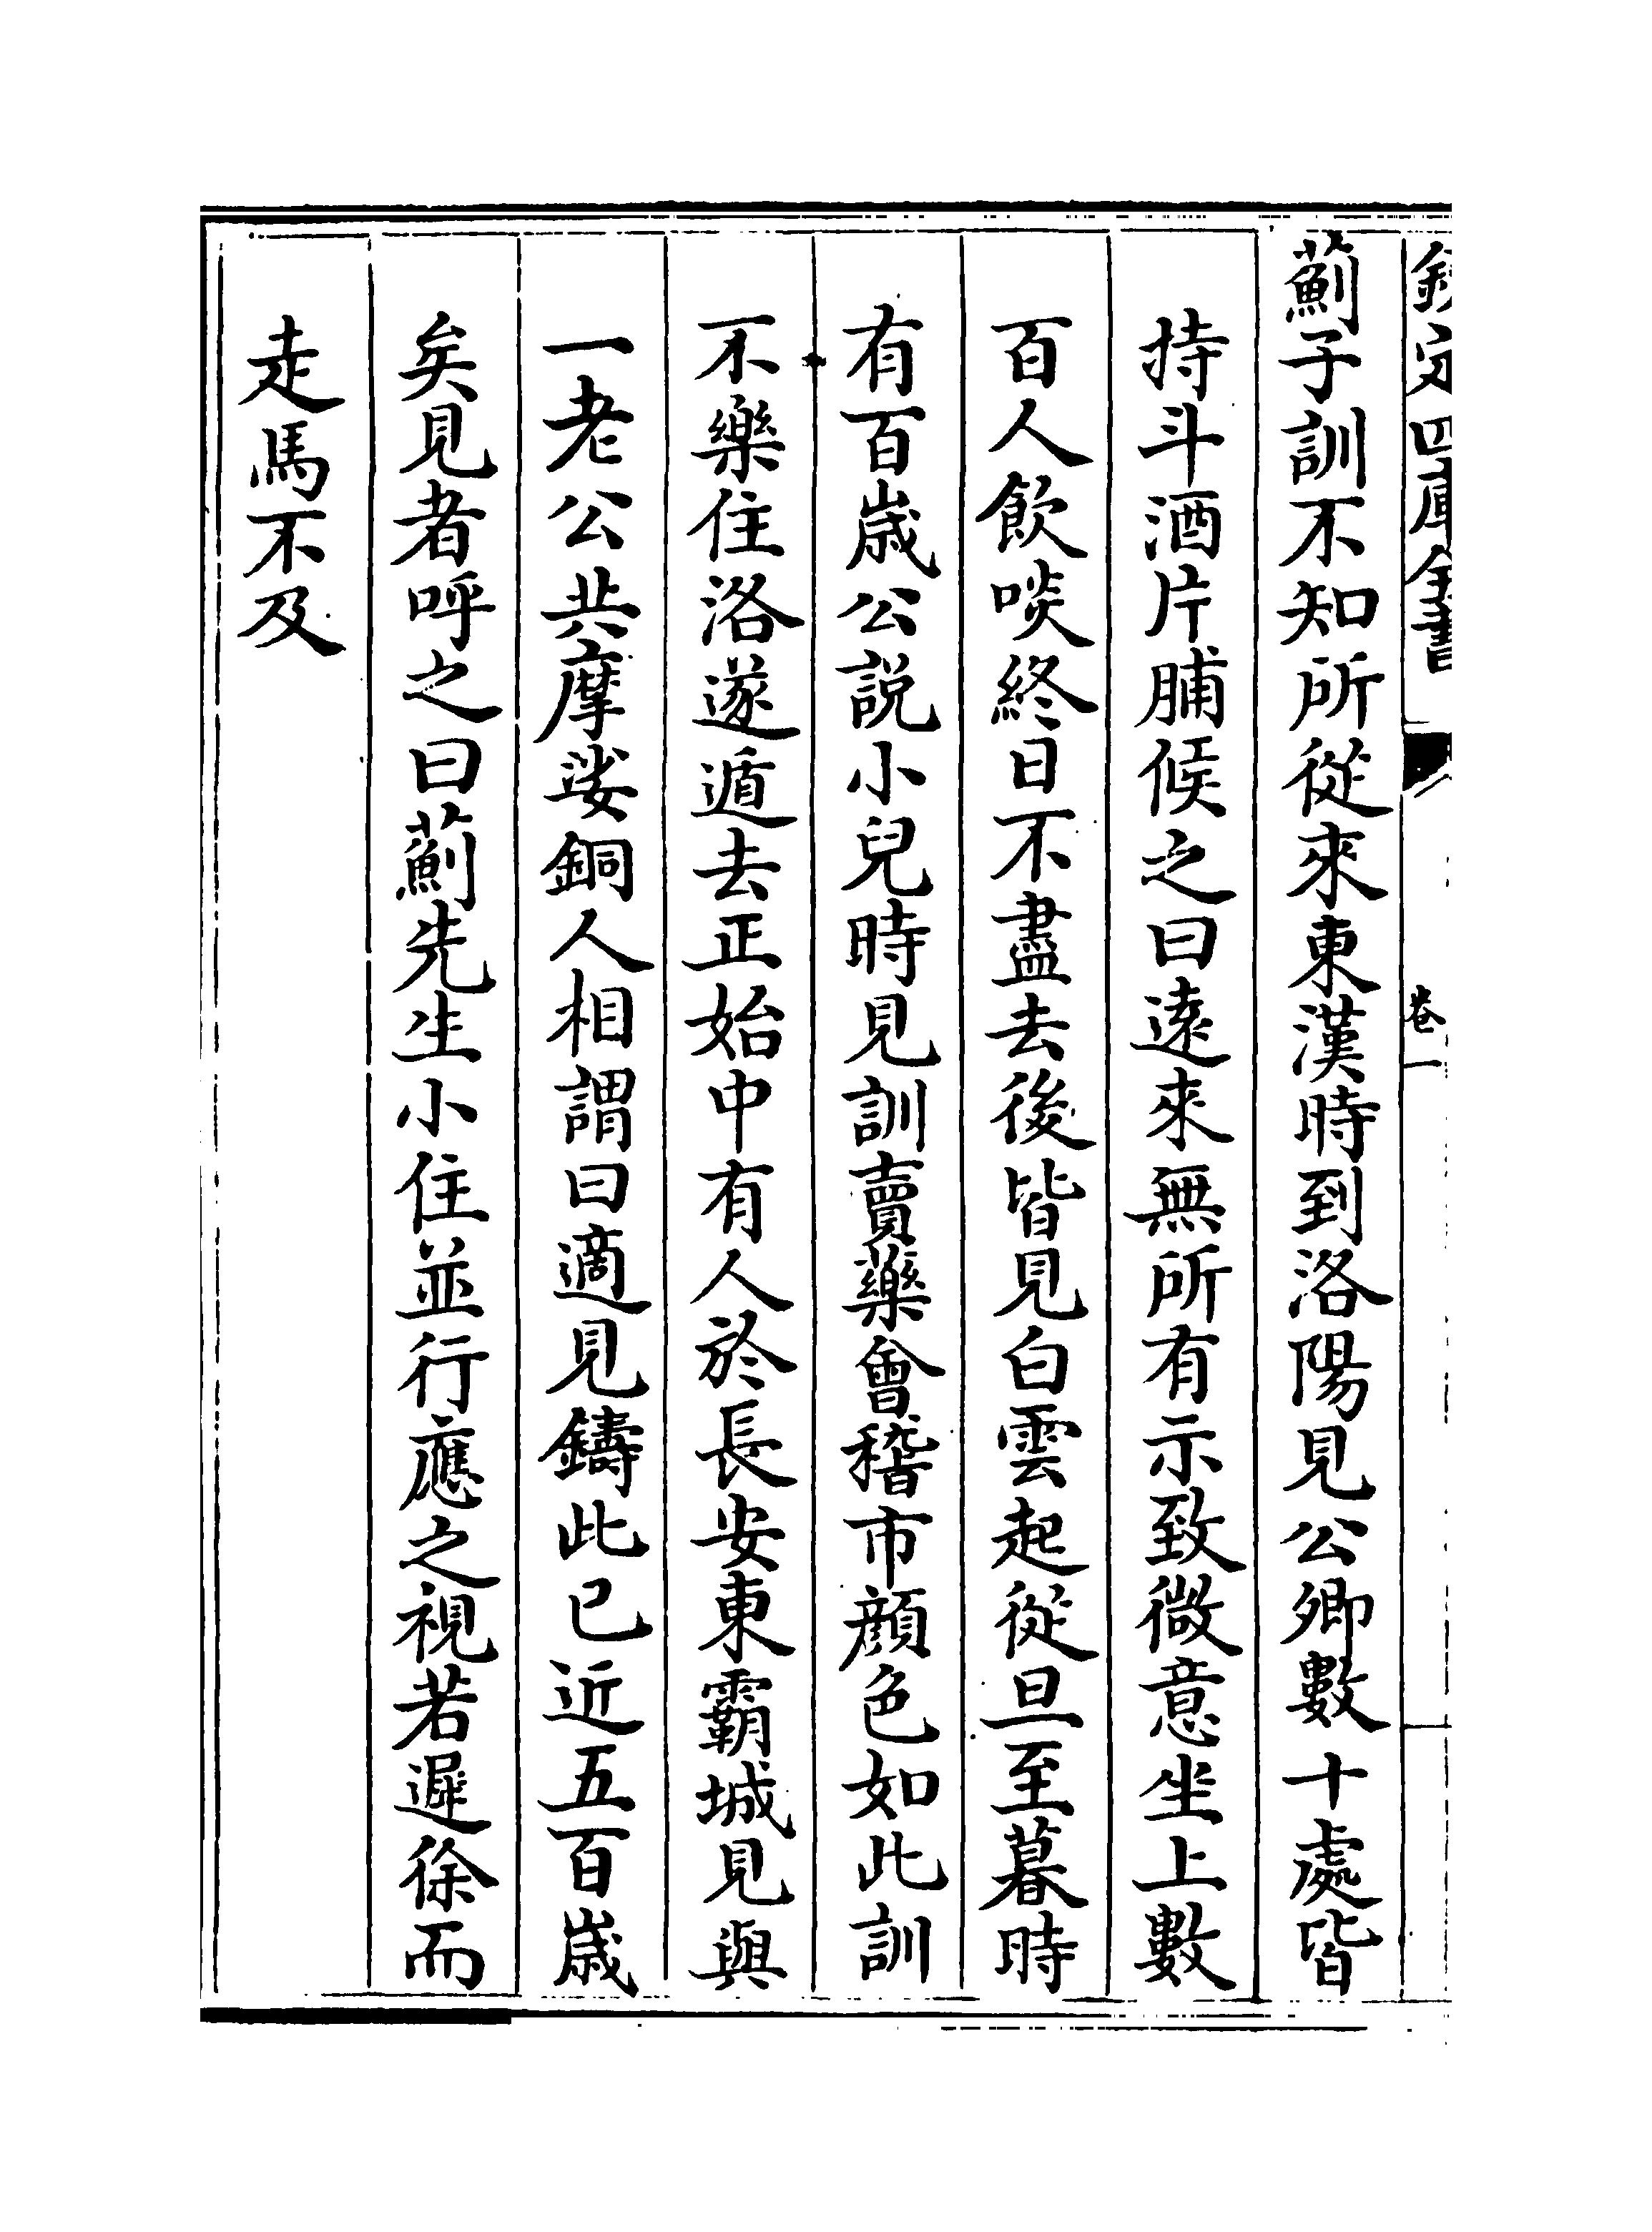 欽定四庫全書
卷一
薊子訓不知所從來東漢時到洛陽見公卿數十處皆
持斗酒片脯候之曰遠來無所有示致微意坐上數
百人飲啖終日不盡去後皆見白雲起從旦至暮時
有百歲公説小兒時見訓賣藥會稽市顔色如此訓
不樂住洛遂遁去正始中有人於長安東霸城見與
一老公共摩娑銅人相謂曰適見鑄此已近五百歲
矣見者呼之曰薊先生小住並行應之視若遲徐而
走馬不及